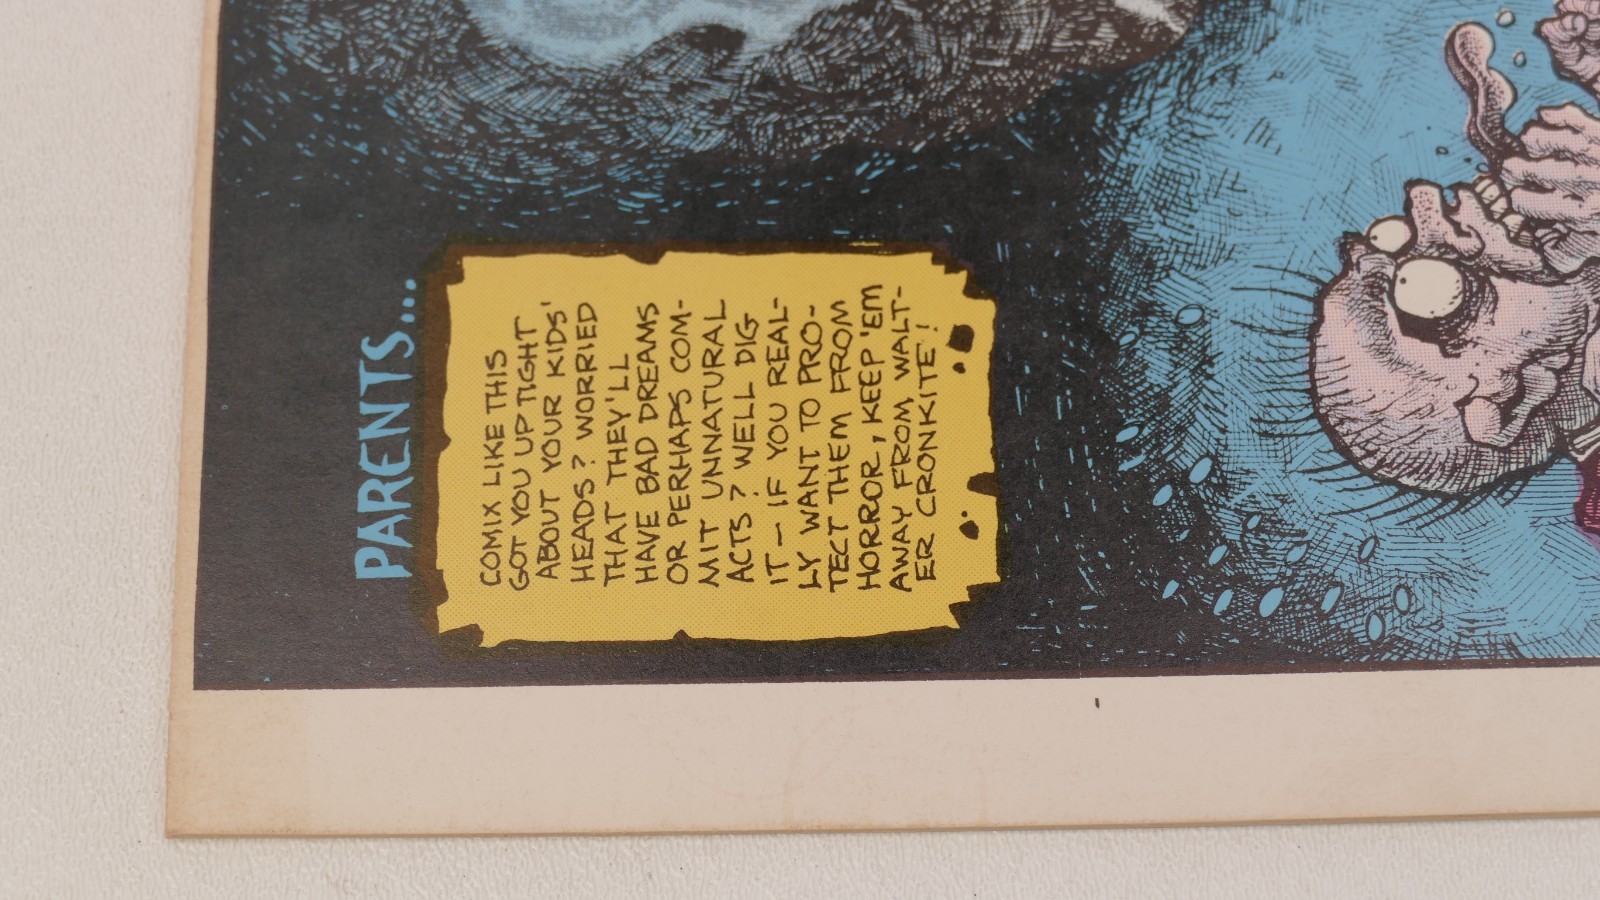 PARENTS...
COMIX LIKE THIS
GOT YOU UP TIGHT
ABOUT YOUR KIDS'
HEADS? WORRIED
THAT THEY'LL
HAVE BAD DREAMS
OR PERHAPS COM-
MIT UNNATURAL
ACTS? WELL DIG
IT — IF YOU REAL-
LY WANT TO PRO-
TECT THEM FROM
HORROR, KEEP 'EM
AWAY FROM WALT-
ER CRONKITE!